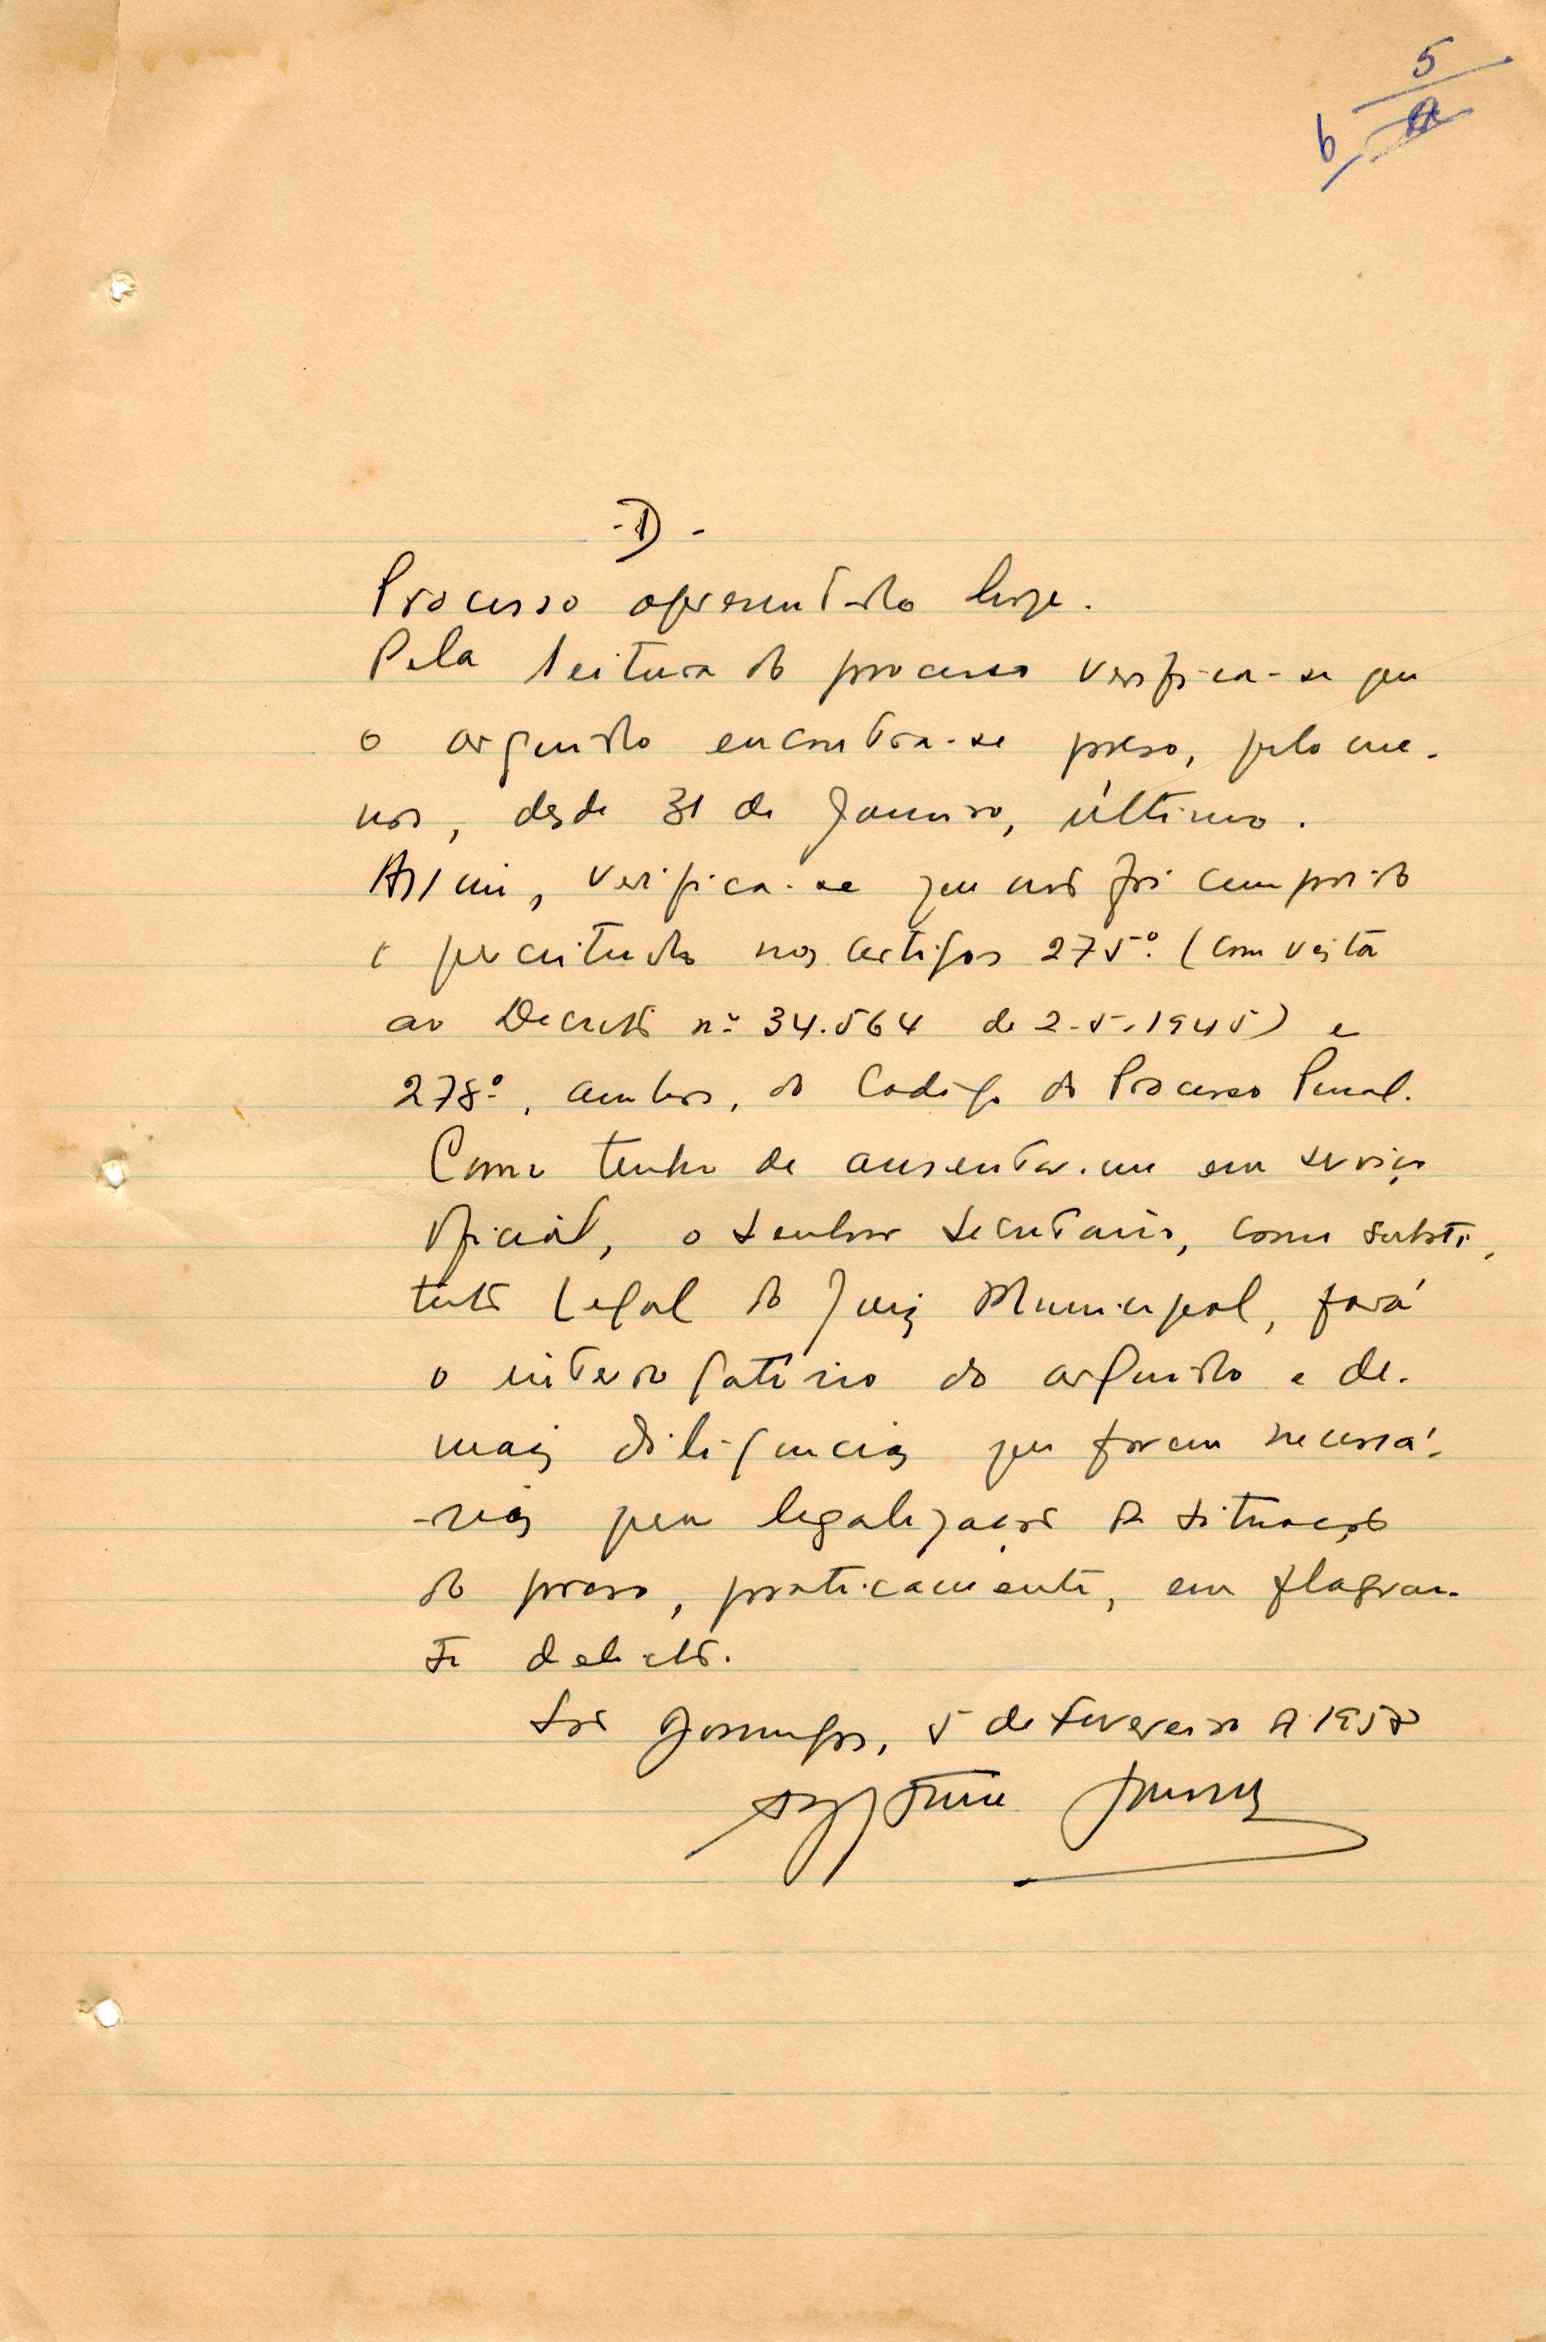 5
6
- D -
Processo apresentado hoje.
Pela leitura do processo verifica-se que
o arguido encontra-se preso, pelo me-
nos, desde 31 de Janeiro, último.
Assim, verifica-se que não foi cumprido
o preceituado nos artigos 275º. (com vista
ao Decreto nº 34.564 de 2-5-1945) e
278º, ambos, do Codigo do Processo Penal.
Como tenho de ausentar-me em serviço
oficial, o senhor secretário, como substi-
tuto legal do Juiz Municipal, fará
o interrogatório do arguido e de-
mais diligencias que forem necessá-
-rias para legalização da situação
do preso, praticamente, em flagran-
te delicto.
São Domingos, 5 de Fevereiro de 1958